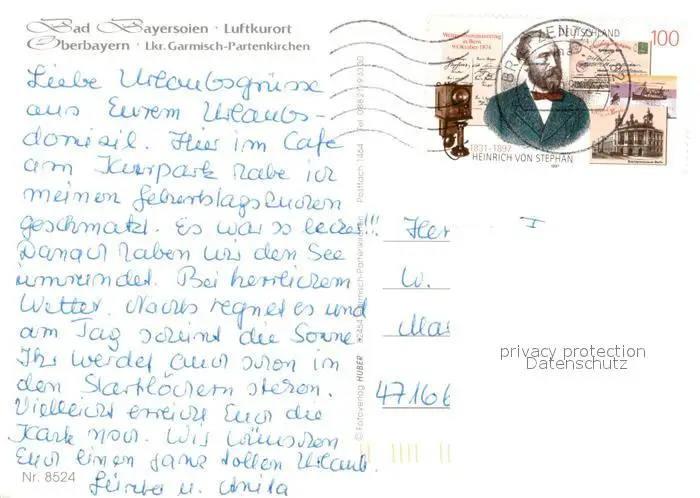 Bad Bayersoien · Luftkurort
Oberbayern · Lkr. Garmisch-Partenkirchen
Liebe Urlaubsgrüsse
aus Eurem Urlaubs-
domizil. Hier im Cafe
am Kurpark habe ich
meinen Geburtstagskuchen
geschmatzt. Es war so lecker!!!
Danach haben wir den See
umrundet. Bei herrlichem
Wetter. Nachts regnet es und
am Tag scheint die Sonne
Ihr werdet auch schon in
den Startlöchern stehen.
Vielleicht erreicht Euch die
Karte noch. Wir wünschen
Euch einen ganz tollen Urlaub.
u. Anita
Nr. 8524
© Fotoverlag HUBER 82454 Garmisch-Partenkirchen Postfach 1464
Weltpostvereinsvertrag
in Bern
9. Oktober 1874
DEUTSCHLAND
100
1831-1897
HEINRICH VON STEPHAN
1997
Her
W.
Ma
47166
privacy protection
Datenschutz